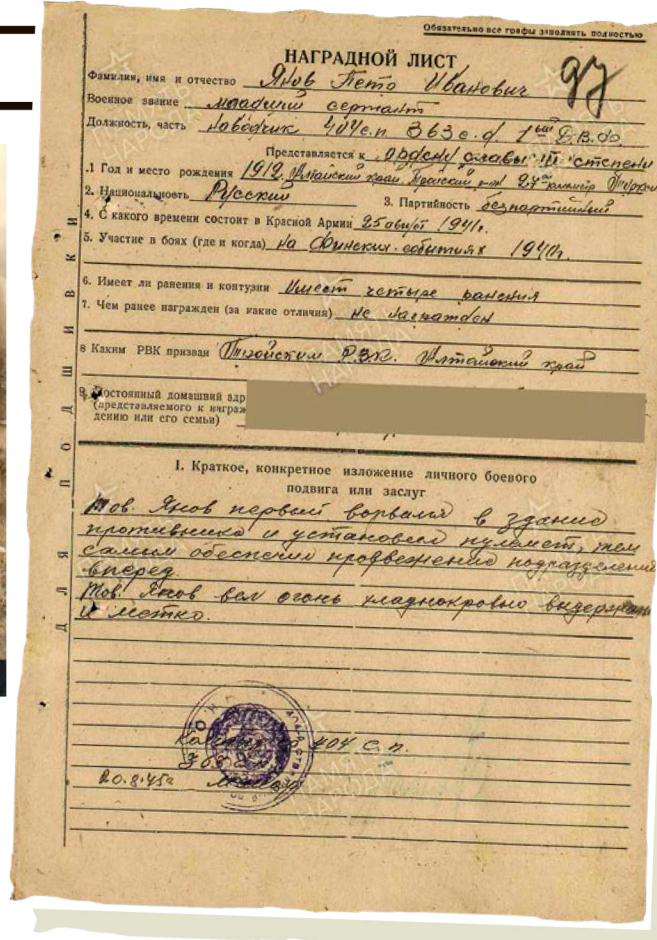 Обязательно все графы заполнять полностью
НАГРАДНОЙ ЛИСТ
97
Фамилия, имя и отчество Янов Петр Иванович
Военное звание младший сержант
Должность, часть наводчик 404 с.п. 363 с.д. 1ый Д.В.Ф.
Представляется к ордену славы III степени
.1 Год и место рождения 1912. Алтайский край
2. Национальность Русский
3. Партийность безпартийный
4. С какого времени состоит в Красной Армии 25 август 1941г.
5. Участие в боях (где и когда) на Финских событиях 1940г.
6. Имеет ли ранения и контузии Имеет четыре ранения
7. Чем ранее награжден (за какие отличия) не награжден
8 Каким РВК призван Р.В.К. Алтайский край
9. Постоянный домашний адр
(представляемого к награж
дению или его семьи)
I. Краткое, конкретное изложение личного боевого
подвига или заслуг
Тов. Янов первый ворвался в здание
противника и установил пулемет, тем
самым обеспечил продвежение подразделения
вперед.
Тов. Янов вел огонь хладнокровно
и метко.
404 с.п.
20.8.45г
ДЛЯ ПОДШИВКИ
ПАМЯТЬ
НАРОДА